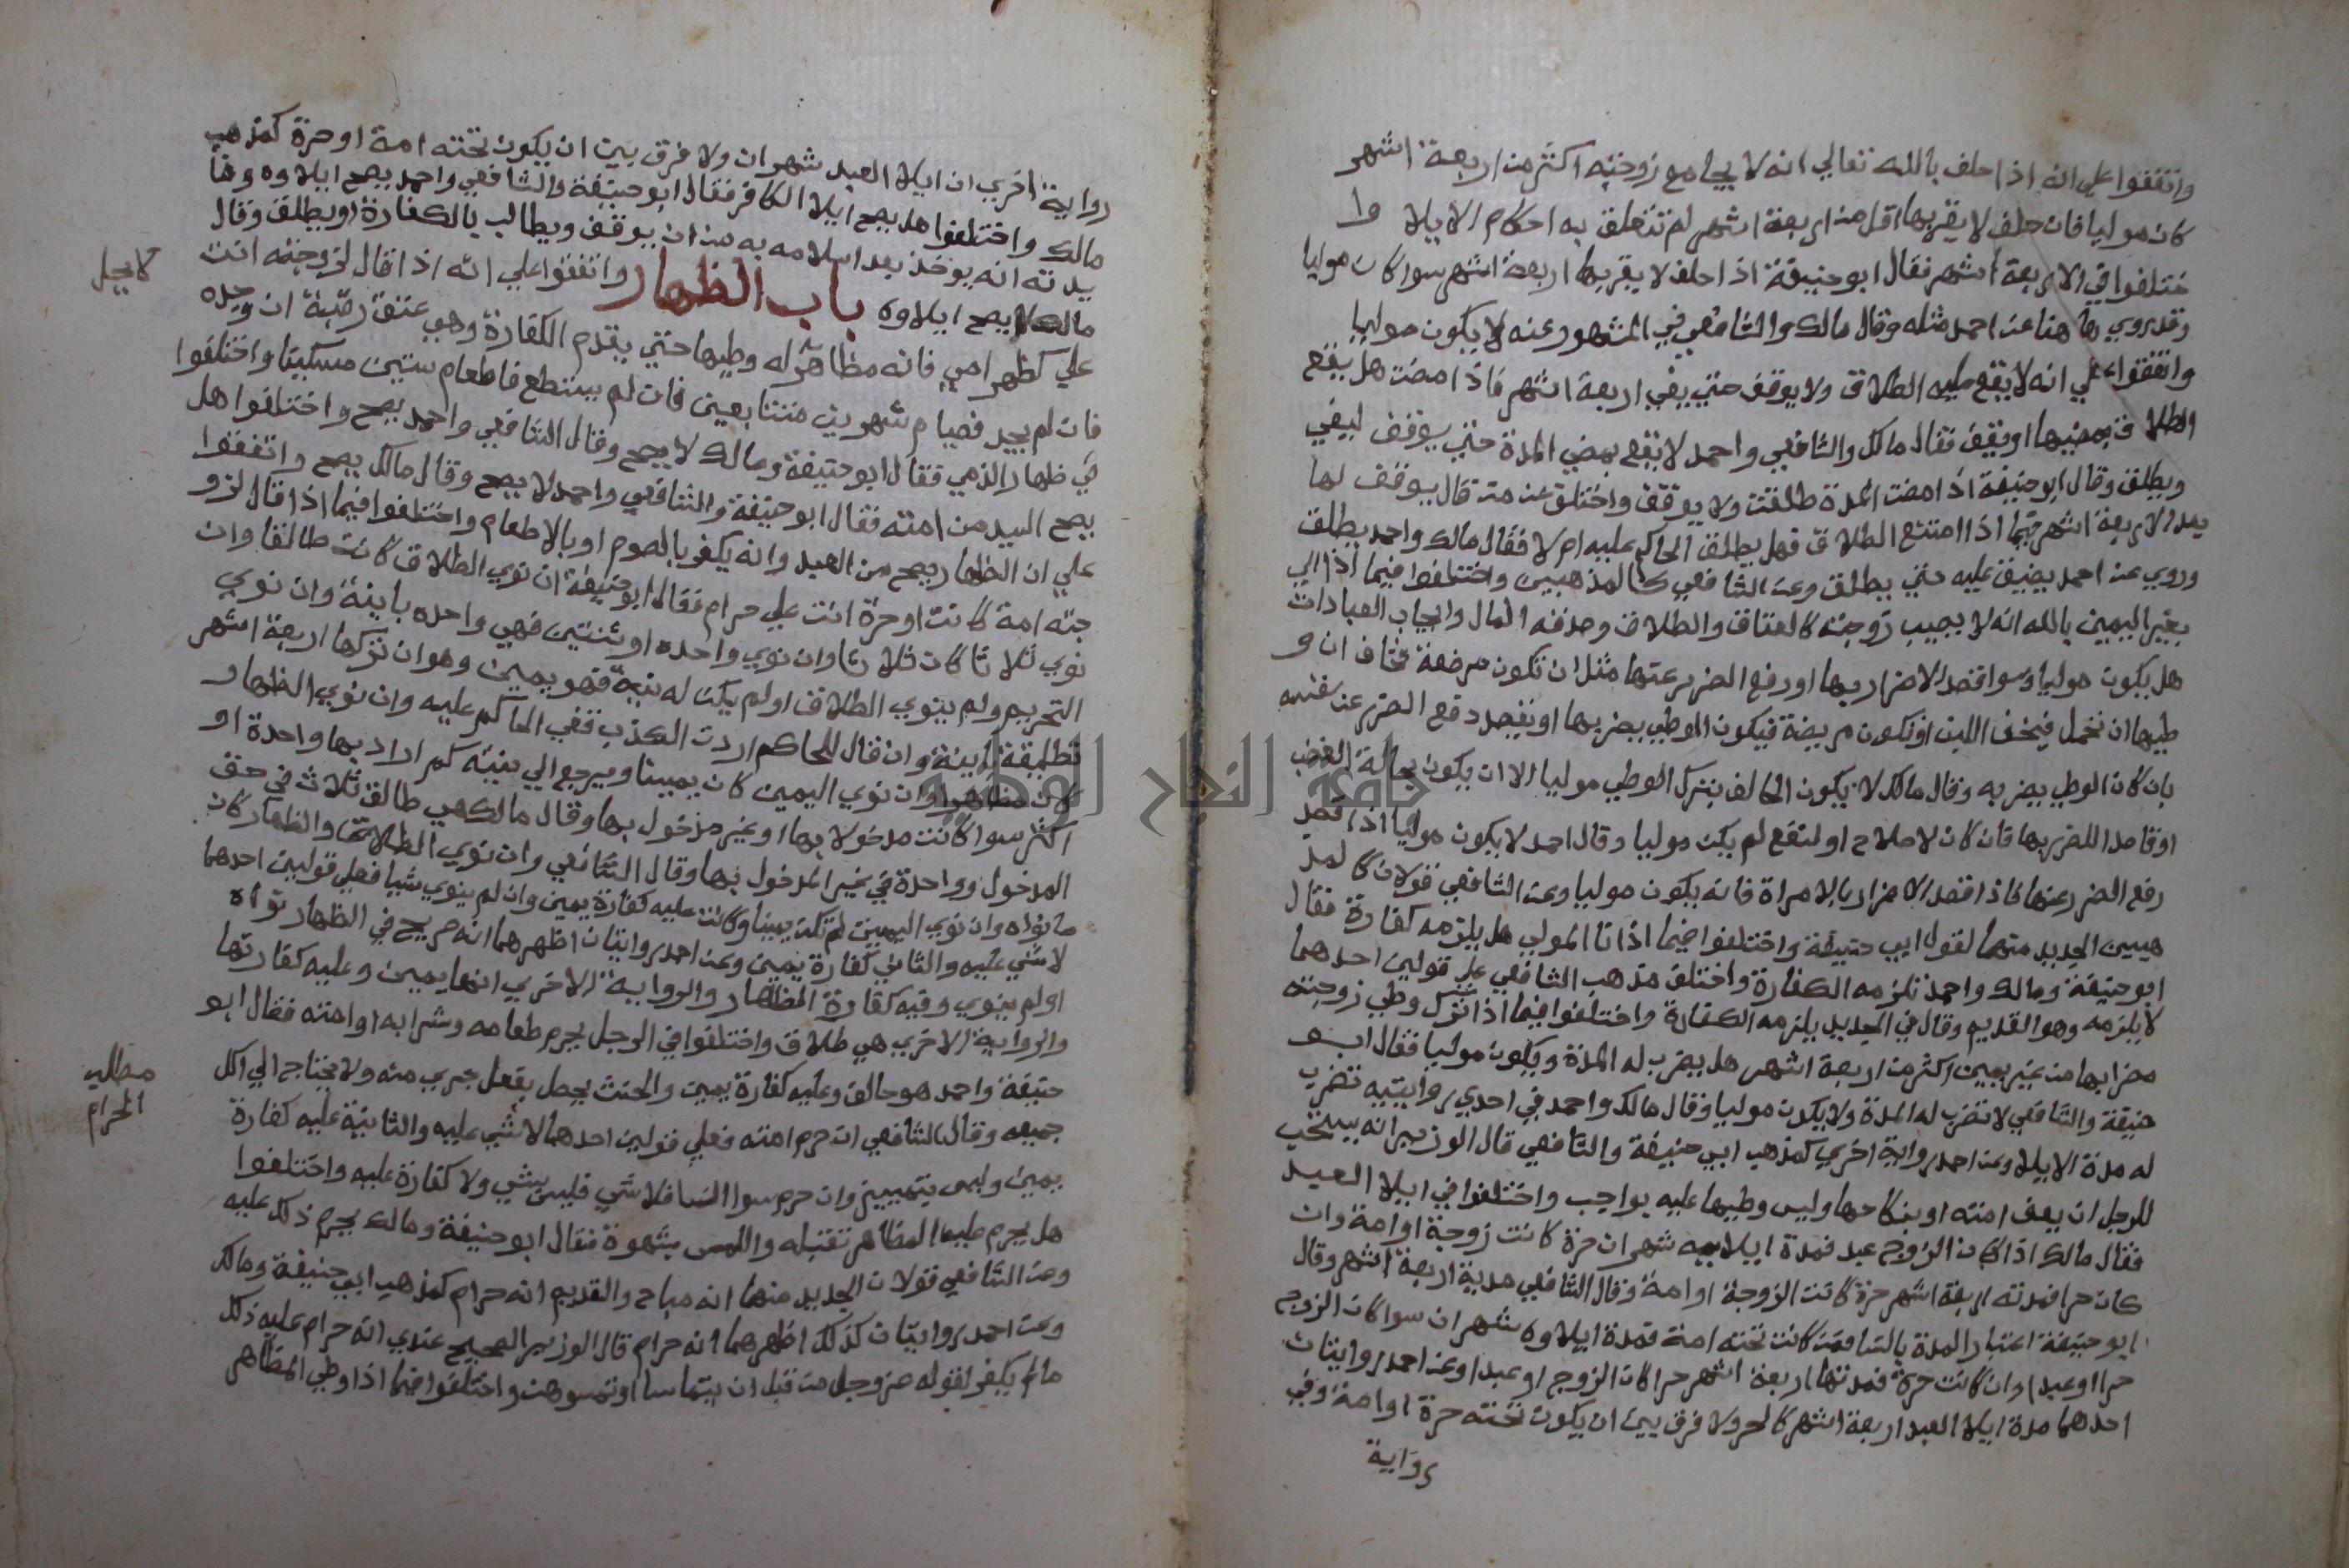 واتفقوا علي انه اذا حلف بالله تعالي انه لا يجامع زوجته اكثر من اربعة اشهر
كان موليا فان حلف لا يقربها اقل من اربعة اشهر لم تتعلق به احكام الايلا وا
ختلفوا في الاربعة اشهر فقال ابو حنيفة اذا حلف لا يقربها اربعة اشهر سوا كان موليا
وقد روي هاهنا عن احمد مثله وقال مالك والشافعي في المشهور عنه لا يكون موليا
واتفقوا علي انه لا يقع عليه الطلاق ولا يوقف حتي يفي اربعة اشهر فاذا مضت هل يقع
الطلاق بمضيها او يقف فقال مالك والشافعي واحمد لا يقع بمضي المدة حتي يوقف ليفي
ويطلق وقال ابو حنيفة اذا مضت المدة طلقت ولا يوقف واختلف عن من قال يوقف لها
بعد الاربعة اشهر فيما اذا امتنع الطلاق فهل يطلق الحاكم عليه ام لا فقال مالك واحمد يطلق
وروي عن احمد يضيق عليه حتي يطلق وعن الشافعي كالمذهبين واختلفوا فيما اذا الي
بغير اليمين بالله انه لا يجيب زوجته كالعتاق والطلاق وصدفه المال وايجاب العبادات
هل يكون موليا وسوا قصد الاضرار بها او رفع الضرر عنها مثل ان تكون مرضعة تخاف ان و
طيها ان تحمل فيخف اللبن او تكون مريضة فيكون الوطي يضر بها او يقصد دفع الضرر عن نفسه
بان كان الوطي يضر به وقال مالك لا يكون الحالف بترك الوطي موليا الا ان يكون بحالة الغضب
او قاصد اللضر بها فان كان لاصلاح او لنفع لم يكن موليا وقال احمد لا يكون موليا اذا قصد
رفع الضرر عنها فاذا قصد الاضرار بالامراة فانه يكون موليا وعن الشافعي قولان كالمذ
هبين الجديد منهما لقول ابي حنيفة واختلفوا فيما اذا فا المولي هل يلزمه كفارة فقال
ابو حنيفة ومالك واحمد تلزمه الكفارة واختلف مذهب الشافعي علي قولين احدهما
لا يلزمه وهو القديم وقال في الجديد يلزمه الكفارة واختلفوا فيما اذا ترك وطي زوجته
مضرا بها من غير يمين اكثر من اربعة اشهر هل يضرب له المدة ويكون موليا فقال ابو
حنيفة والشافعي لا تضرب له المدة ولا يكون موليا وقال مالك واحمد في احدي روايتيه تضرب
له مدة الايلا وعن احمد رواية اخري كمذهب ابي حنيفة والشافعي قال الوزير انه يستحب
للرجل ان يعف امته او بنكاحها وليس وطيها عليه بواجب واختلفوا في ايلا العبد
فقال مالك اذا كان الزوج عبد فمدة ايلاىيه شهران حرة كانت زوجة او امة وان
كان حرا فمدته اربعة اشهر حرة كانت الزوجة او امة وقال الشافعي مدية اربعة اشهر وقال
ابو حنيفة اعتبار المدة بالنسا فمن كانت تحته امة فمدة ايلاوه شهران سوا كان الزوج
حرا او عبدا وان كانت حرة فمدتها اربعة اشهر حرا كان الزوج او عبدا وعن احمد روايتان
احدهما مدة ايلا العبد اربعة اشهر كالحر ولا فرق بين ان يكون تحته حرة او امة وفي
رواية
رواية اخري ان ايلا العبد شهران ولا فرق بين ان يكون تحته امة او حرة كمذهب
مالك واختلفوا هل يصح ايلا الكافر فقال ابو حنيفة والشافعي واحمد يصح ايلاوه وفا
يدته انه يوخذ بعد اسلامه به من ان يوقف ويطالب بالكفارة او يطلق وقال
مالك لا يصح ايلاوه باب الظهار واتفقوا علي انه اذا قال لزوجته انت
علي كظهر امي فانه مظاهر له وطيها حتي يقدم الكفارة وهي عتق رقبة ان وجده
كايحل
فان لم يجد فصيام شهرين متتابعين فان لم يستطع فاطعام ستين مسكينا واختلفوا
في ظهار الذمي فقال ابو حنيفة ومالك لا يصح وقال الشافعي واحمد يصح واختلفوا هل
يصح السيد من امته فقال ابو حنيفة والشافعي واحمد لا يصح وقال مالك يصح واتفقوا
علي ان الظهار يصح من العبد وانه يكفر بالصوم او بالاطعام واختلفوا فيما اذا قال لزو
جته امة كانت او حرة انت علي حرام فقال ابو حنيفة ان نوي الطلاق كانت طالقا وان
نوي ثلاثا كان ثلاثا وان نوي واحده او ثنتين فهي واحده باينة وان نوي
التحريم ولم ينوي الطلاق او لم يكن له نية فهو يمين وهو ان تركها اربعة اشهر
تطليقة باينة وان قال للحاكم اردت الكذب ففي الحاكم عليه وان نوي الظهار
كان مظاهرا وان نوي اليمين كان يمينا ويرجع الي نيته كم اراد بها واحدة او
اكثر سوا كانت مدخولا بها او غير مدخول بها وقال مالك هي طالق ثلاث في حق
المدخول وواحدة في غير المدخول بها وقال الشافعي وان نوي الطلاق والظهار كان
ما نواه وان نوي اليمين لم تكن يمينا وكانت عليه كفارة يمين وان لم ينوي شيا فعلي قولين احدهما
لا شي عليه والثاني كفارة يمين وعن احمد روايتان اظهرهما انه صريح في الظهار نواه
او لم ينوي وفيه كفارة المظاهر والرواية الاخري انها يمين وعليه كفارتها
والرواية الاخري هي طلاق واختلفوا في الرجل يحرم طعامه وشرابه او امته فقال ابو
حنيفة واحمد هو حالف وعليه كفارة يمين والحنث يحصل بفعل جزي منه ولا يحتاج الي اكل
مطلب
الحرام
جميعه وقال الشافعي ان حرم امته فعلي قولين احدهما لا شي عليه والثانية عليه كفارة
يمين وليس بتمييز وان حرم سوا النسا فلا شي فليس بشي ولا كفارة عليه واختلفوا
هل يحرم عليه المظاهر تقبله واللمس بشهوة فقال ابو حنيفة ومالك يحرم ذلك عليه
وعن الشافعي قولان الجديد منهما انه مباح والقديم انه حرام كمذهب ابي حنيفة ومالك
وعن احمد روايتان كذلك اظهرهما انه حرام قال الوزير الصحيح عندي انه حرام عليه ذلك
ما لم يكفر لقوله عز وجل من قبل ان يتماسا او تمسوهن واختلفوا فيما اذا وطي المظاهر
جامعة النجاح الوطنية